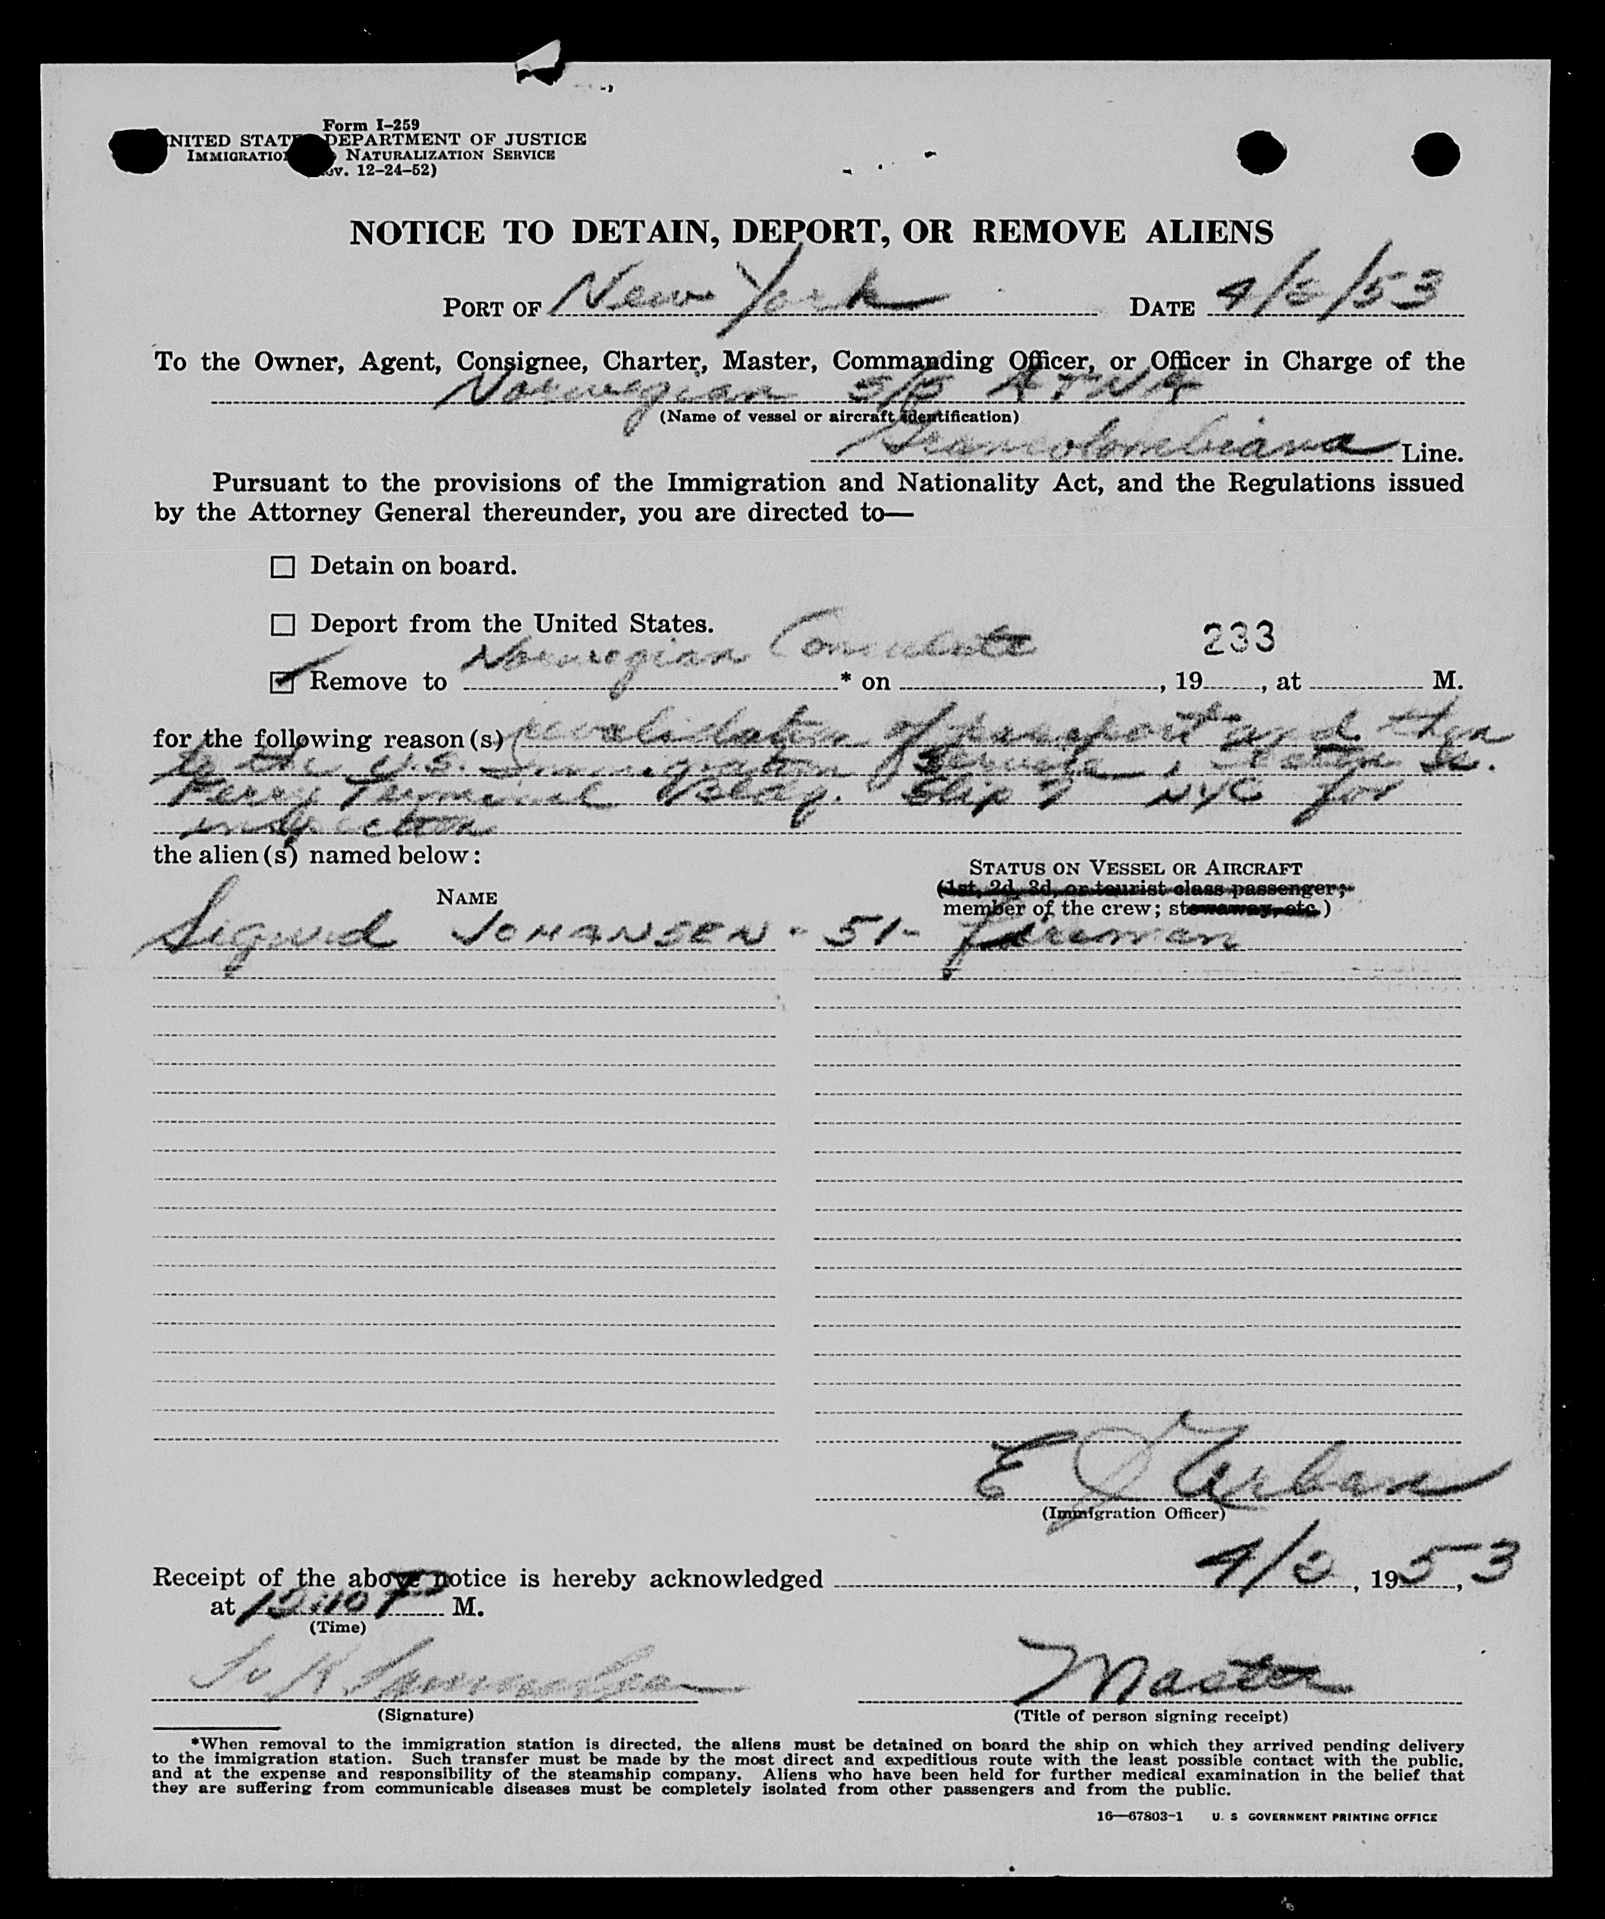 Form I-259
UNITED STATES DEPARTMENT OF JUSTICE
IMMIGRATION NATURALIZATION SERVICE
(Rev. 12-24-52)
NOTICE TO DETAIN, DEPORT, OR REMOVE ALIENS
PORT OF New York DATE 4/2/53
To the Owner, Agent, Consignee, Charter, Master, Commanding Officer, or Officer in Charge of the
Norwegian S/S ATNA
(Name of vessel or aircraft identification)
Grancolombiana Line.
Pursuant to the provisions of the Immigration and Nationality Act, and the Regulations issued
by the Attorney General thereunder, you are directed to—
☐ Detain on board.
☐ Deport from the United States.
233
☑ Remove to Norwegian Consulate * on , 19 , at M.
for the following reason(s) revalidation of passport and then
to the U.S. Immigration Service, Staten Is.
Ferry Terminal Bldg. Slip 7 NYC for
inspection
the alien(s) named below:
NAME
STATUS ON VESSEL OR AIRCRAFT
(1st, 2d, 3d, or tourist class passenger;
member of the crew; stowaway, etc.)
Sigurd JOHANSEN - 51 - fireman
E J Urban
(Immigration Officer)
Receipt of the above notice is hereby acknowledged 4/2, 1953,
at 12:10 P M.
(Time)
Master
(Signature)
(Title of person signing receipt)
*When removal to the immigration station is directed, the aliens must be detained on board the ship on which they arrived pending delivery
to the immigration station. Such transfer must be made by the most direct and expeditious route with the least possible contact with the public,
and at the expense and responsibility of the steamship company. Aliens who have been held for further medical examination in the belief that
they are suffering from communicable diseases must be completely isolated from other passengers and from the public.
16—67803-1 U. S. GOVERNMENT PRINTING OFFICE